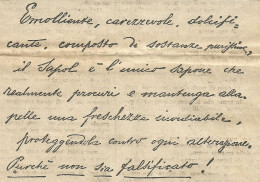 Emolliente, carezzevole, dolcifi-
cante, composto di sostanze purissime,
il Sapol è l'unico sapone che
realmente procuri e mantenga alla
pelle una freschezza invidiabile,
proteggendola contro ogni alterazione.
Purchè non sia falsificato!